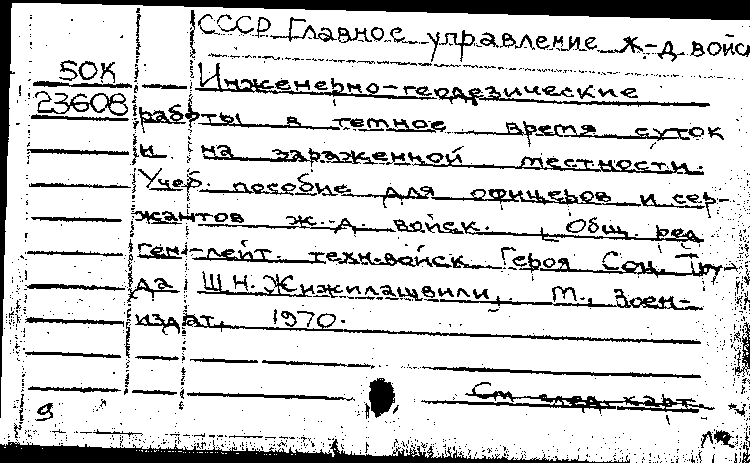 СССР Главное управление ж.-д. войск
50К
Инженерно-геодезические
23608
работы в темное время суток
и на зараженной местности.
Учеб. пособие для офицеров и сер-
жантов ж.-д. войск. [Общ. ред.
ген.-лейт. техн. войск Героя Соц. Тру-
да Ш.Н. Жижилашвили]. М., Воен-
издат, 1970.
См след. карт.
9